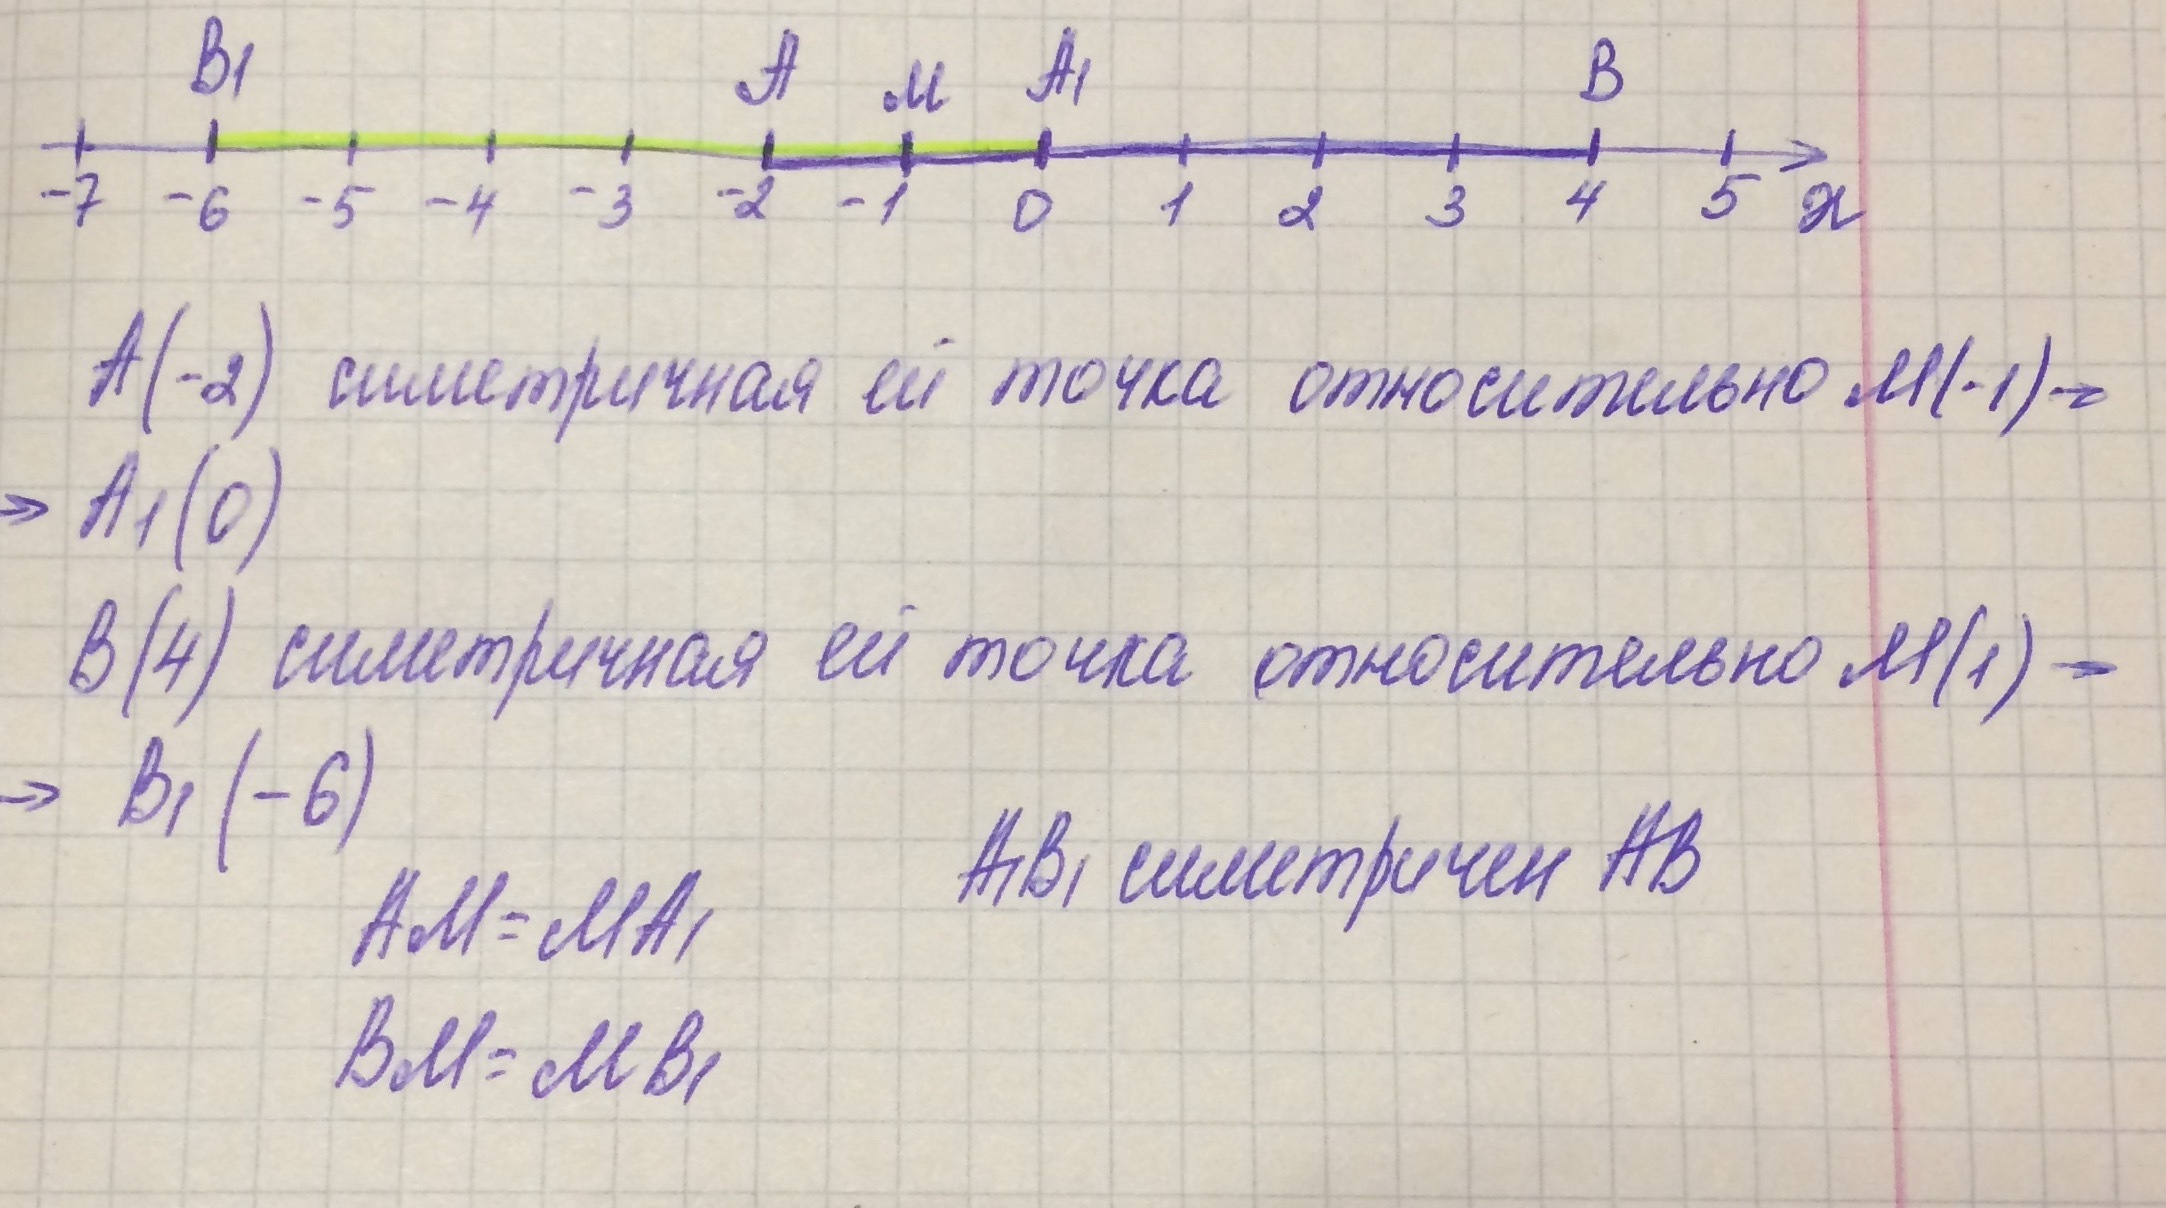 B1 A M A1 B
-7 -6 -5 -4 -3 -2 -1 0 1 2 3 4 5 x
A(-2) симетричная ей точка относительно M(-1) →
→ A1(0)
B(4) симетричная ей точка относительно M(1) →
→ B1(-6)
A1B1 симетричен AB
AM=MA1
BM=MB1